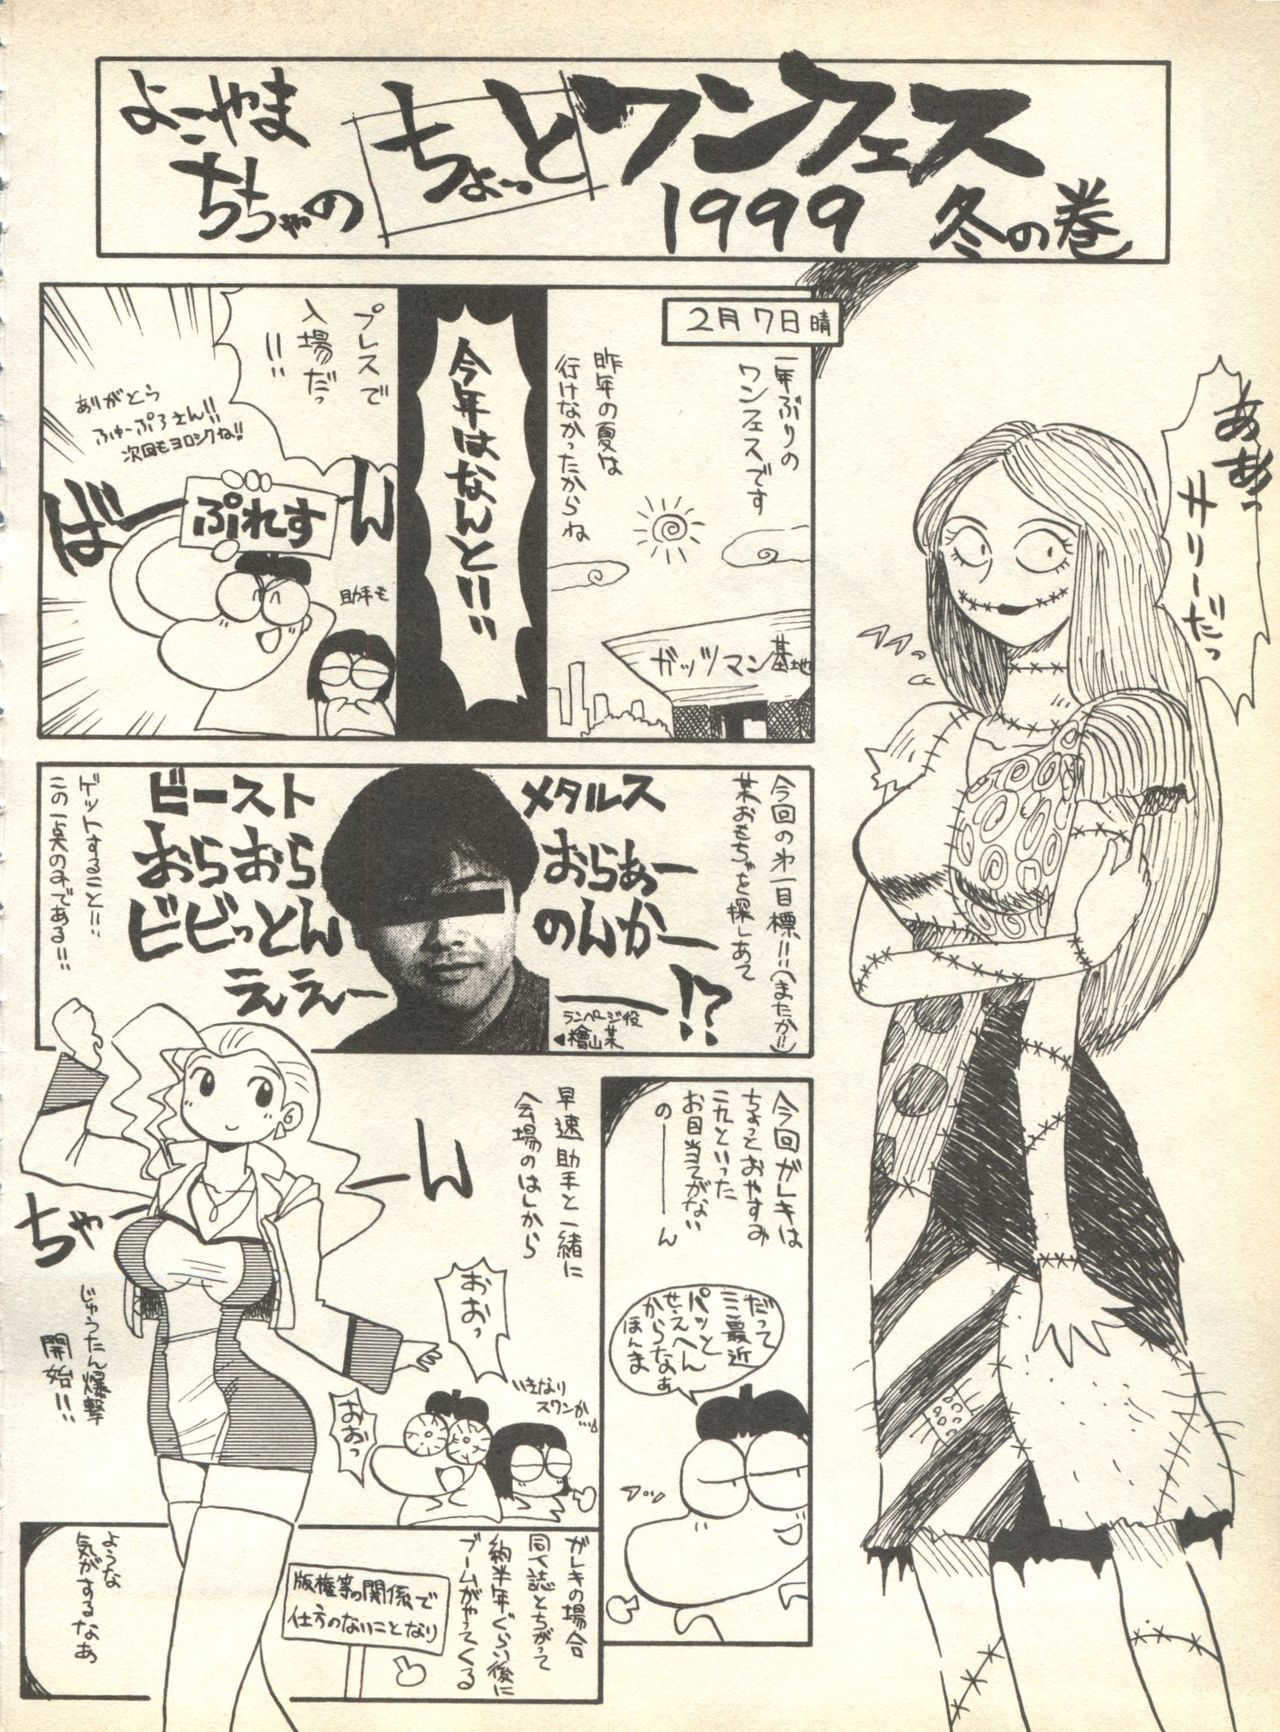 よこやま
ちちゃの
ちょっと
ワンフェス
1999 冬の巻
2月7日晴
一年ぶりの
ワンフェスです
昨年の夏は
行けなかったからね
ガッツマン基地
今年はなんと!!
プレスで
入場だっ
!!
ありがとう
ふゅーぷろさん!!
次回もヨロシクね!!
ばーん
ぷれす
助手も
ああっ
サリーだっ
今回の第一目標!!(またか!!)
某おもちゃを探しあて
メタルス
おらぁー
のんかー
ー!?
ビースト
おらおら
ビビっとん
えんえー
ランページ役
◀檜山某
ゲットすること!!
この一点のみである!!
今回ガレキは
ちょっとおやすみ
これといった
お目当てがない
のーーん
だって
ここ最近
パッと
せぇへん
からなぁ
ほんま
早速助手と一緒に
会場のはしから
ちゃーーん
じゅうたん爆撃
開始!!
おおっ
おおっ
いきなり
スワンか…
ガレキの場合
同人誌とちがって
約半年ぐらい後に
ブームがやってくる
版権等の関係で
仕方のないことなり
ような
気がするなぁ